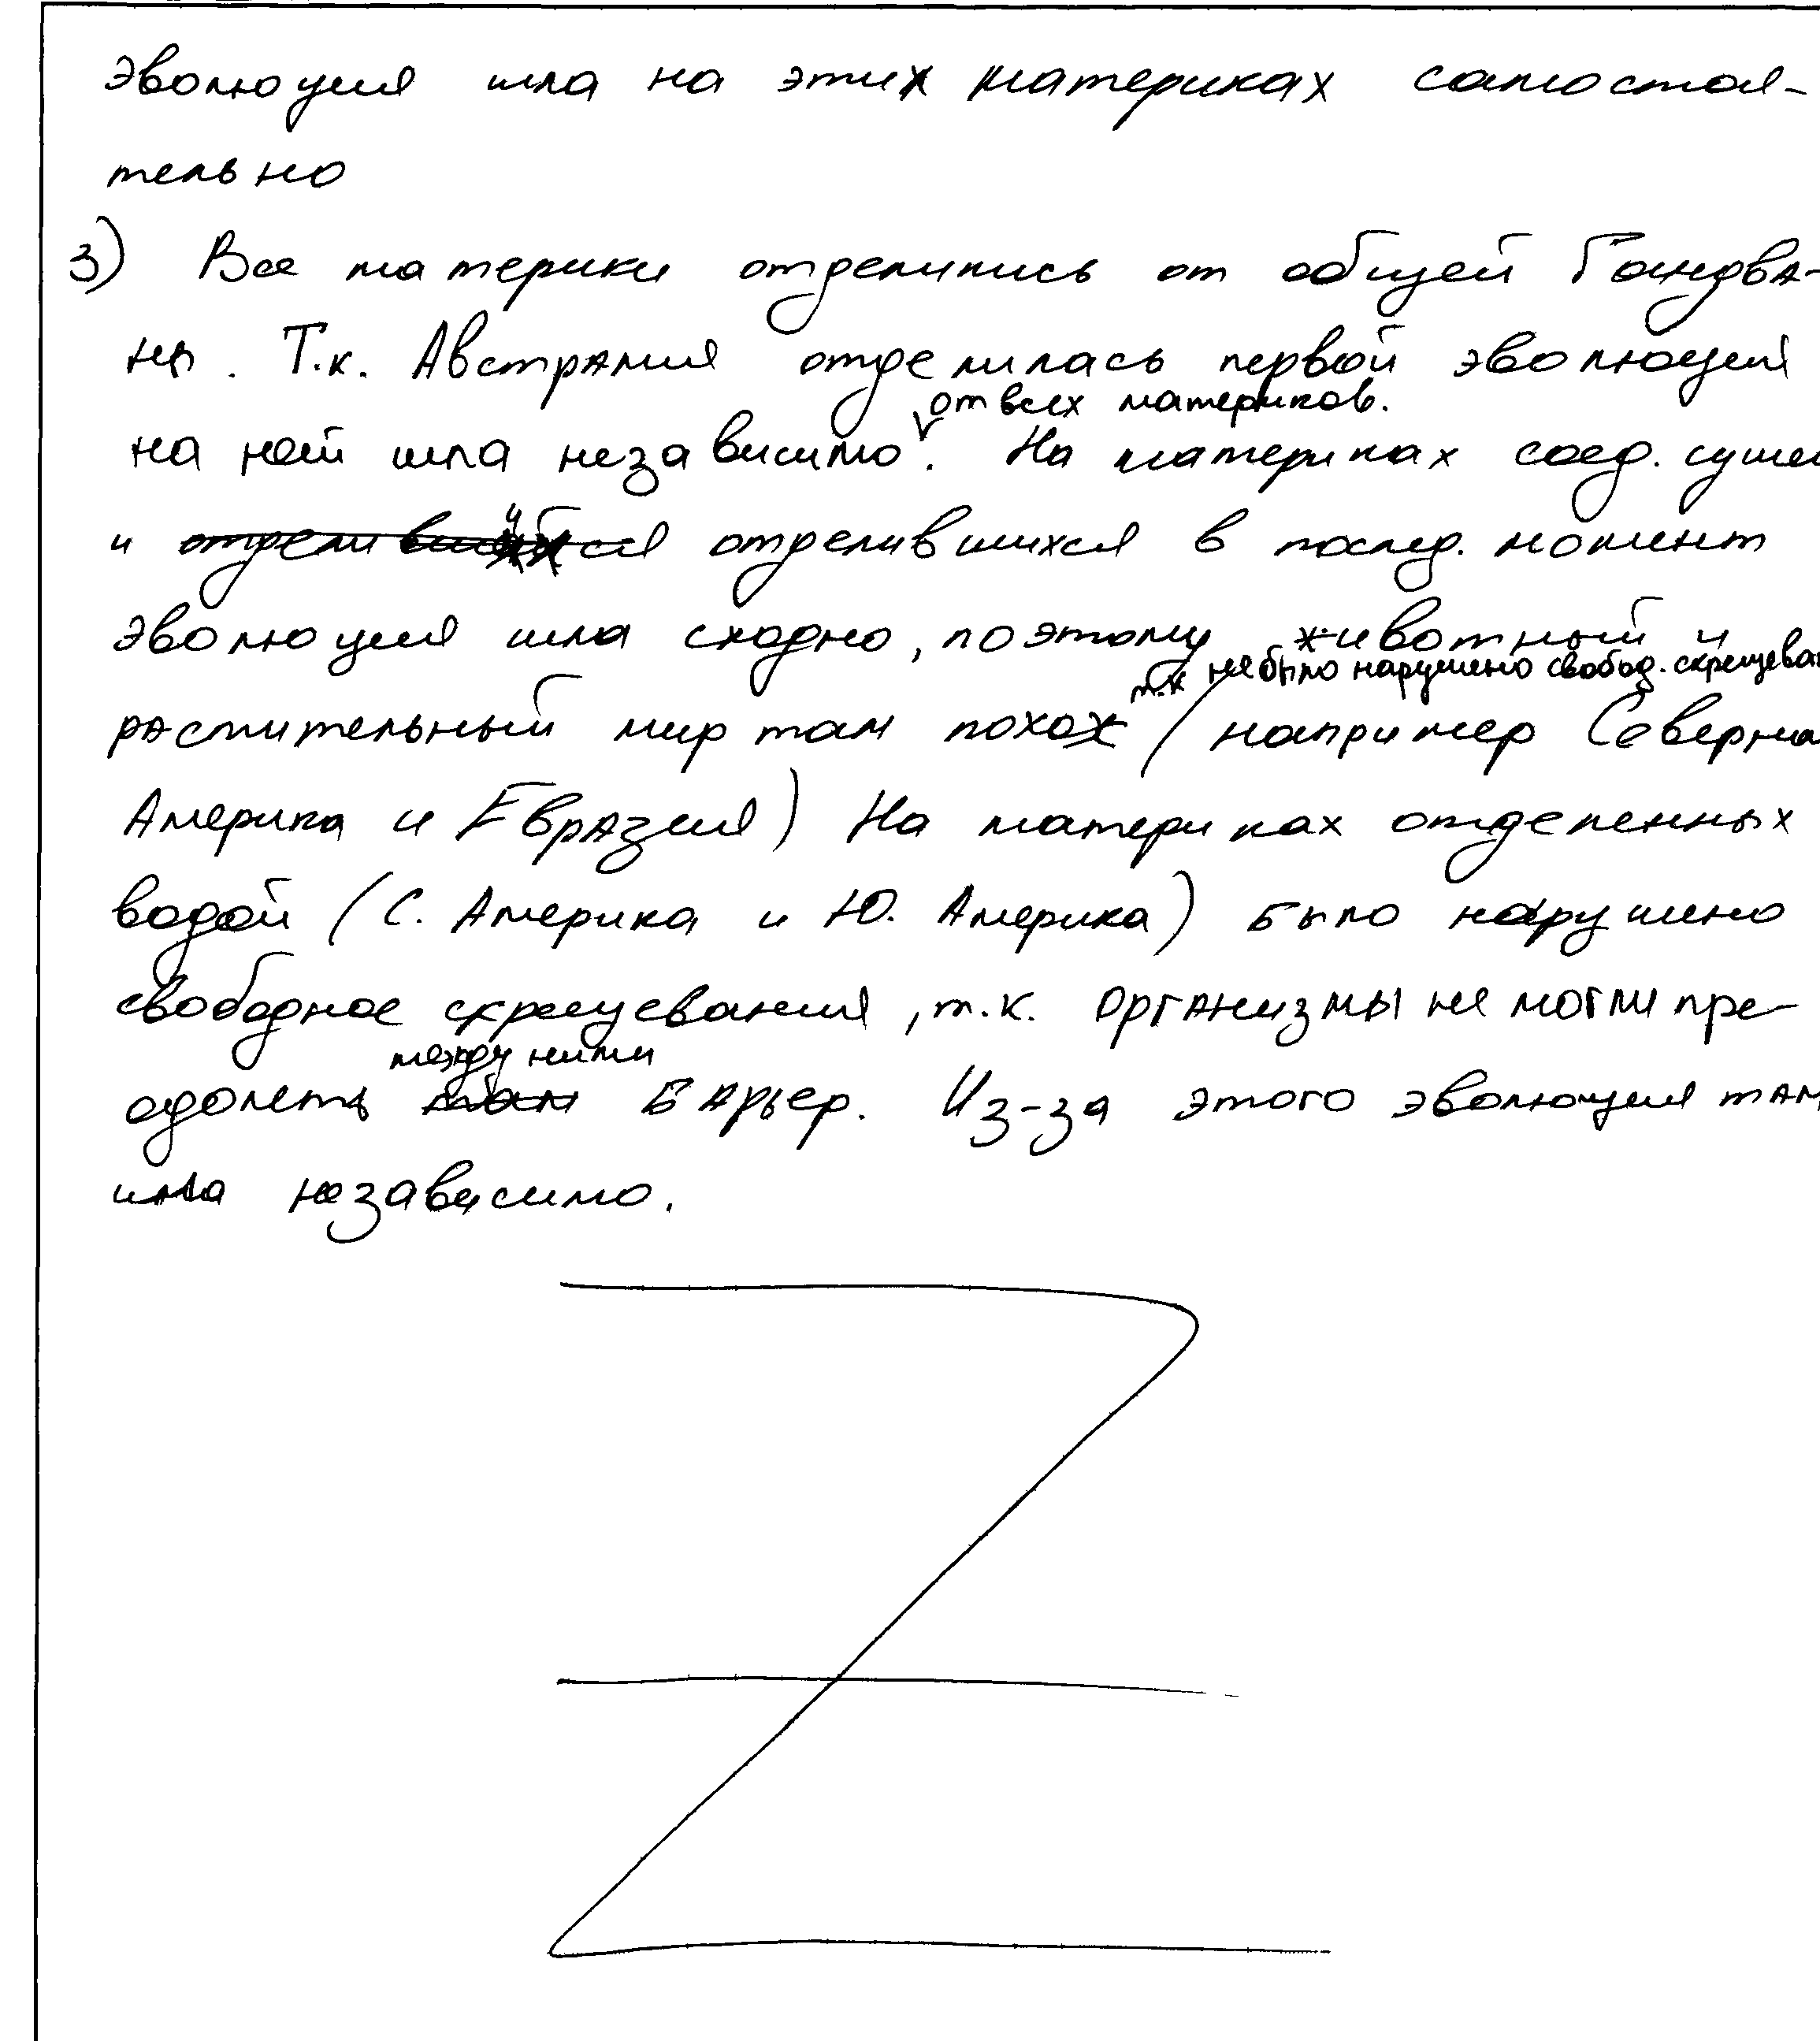 эволюция шла на этих материках самостоя-
тельно
3) Все материки отделились от общей Гондва-
ны. Т.к. Австралия отделилась первой эволюция
от всех материков.
на ней шла независимо. На материках соед. сушей
и отделившихся в послед. момент
эволюция шла сходно, поэтому животный и
т.к не было нарушено свобод. скрещеван
растительный мир там похож (например Северна
Америка и Евразия) На материках отделенных
водой (С. Америка и Ю. Америка) было нарушено
свободное скрещевания, т.к. организмы не могли пре-
между ними
одолеть барьер. Из-за этого эволюция там
шла независимо.